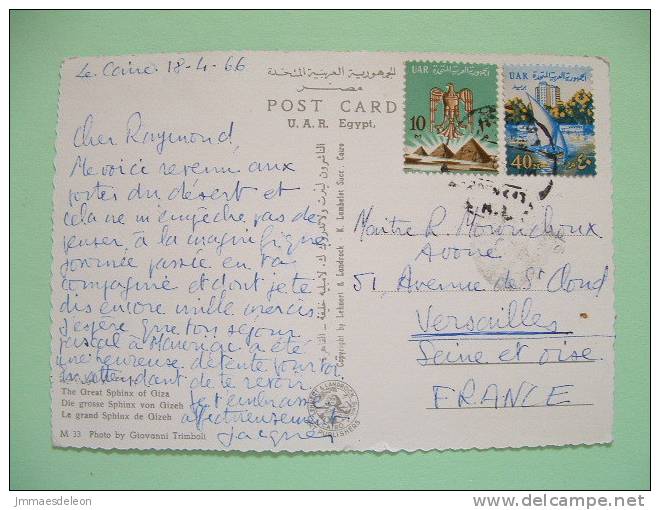 Le Caire 18-4-66
الجمهورية العربية المتحدة
مصر
POST CARD
U. A. R. Egypt.
UAR
الجمهورية العربية المتحدة
10
UAR
الجمهورية العربية المتحدة
بريد
40
٤٠
Cher Raymond,
Me voici revenu aux
portes du désert et
cela ne m'empêche pas de
penser à la magnifique
journée passée en ta
compagnie et dont je te
dis encore mille mercis
J'espère que ton séjour
pascal à a été
une heureuse détente pour toi
En attendant de te revoir
Je t'embrasse
affectueusement
Jacques
The Great Sphinx of Giza
Die grosse Sphinx von Gizeh
Le grand Sphinx de Gizeh
M 33 Photo by Giovanni Trimboli
Copyright by Lehnert & Landrock K. Lambelet Succ. Cairo
LEHNERT & LANDROCK
CAIRO
PUBLISHERS
Maître R.
Avoué
51, Avenue de St Cloud
Versailles
Seine et Oise
FRANCE
jmmaesdeleon
delcampe.net